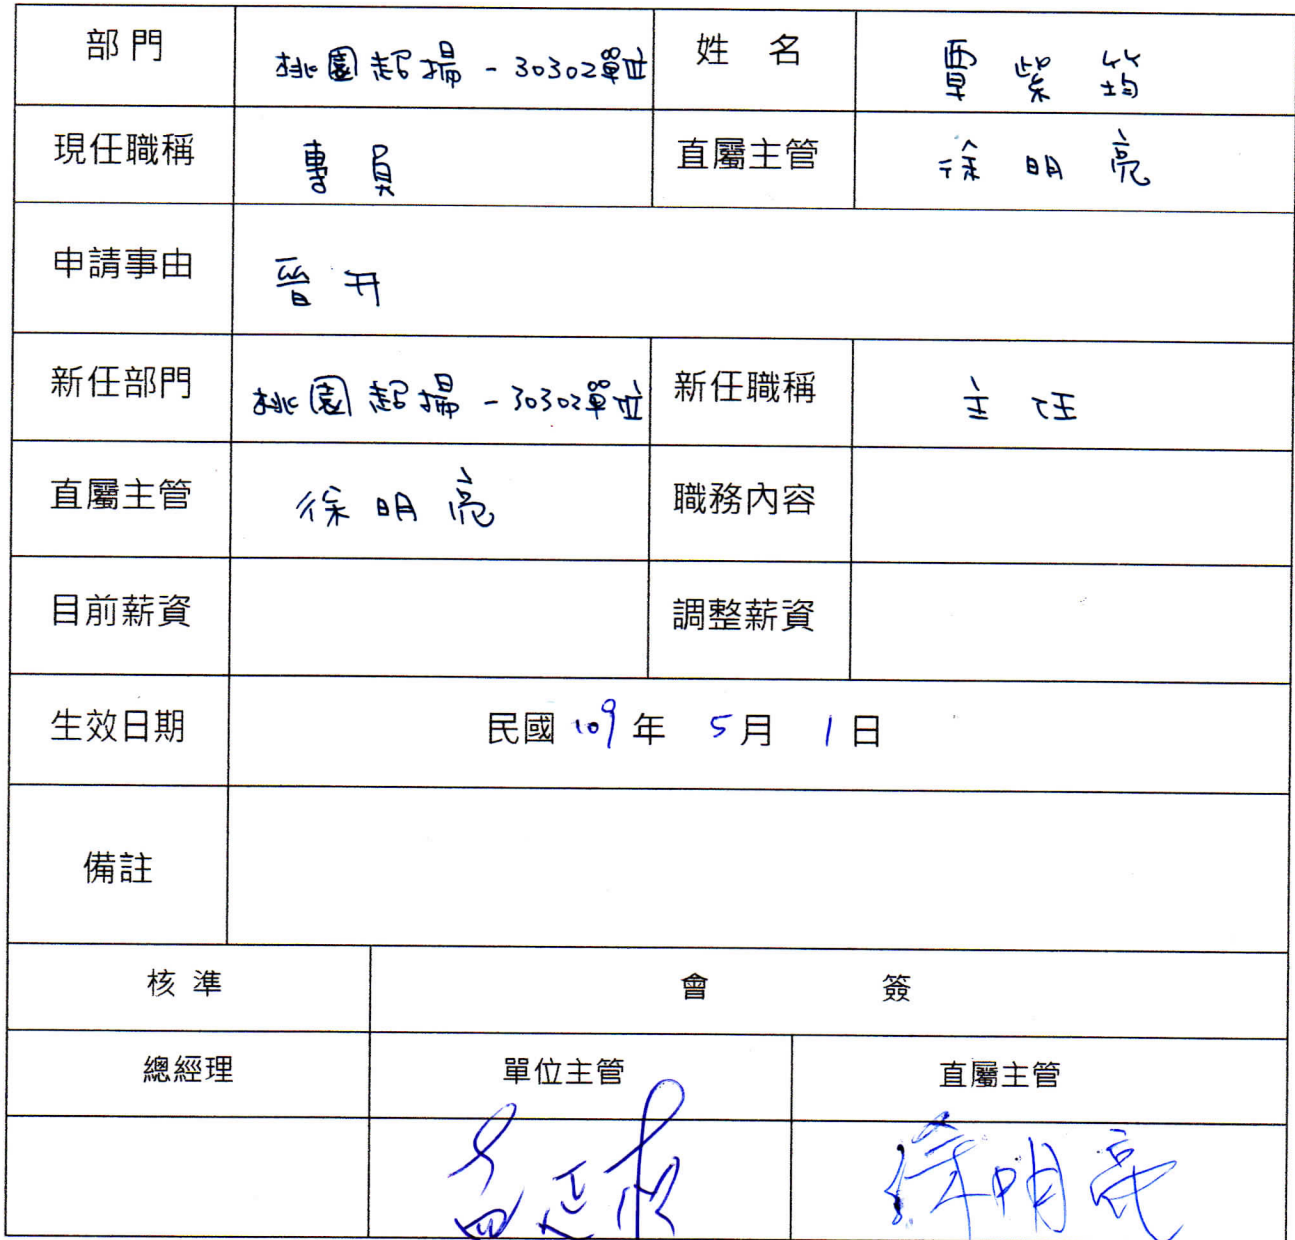 部門 桃園超揚-30302單位 姓名 覃紫筠
現任職稱 專員 直屬主管 徐明亮
申請事由 晉升
新任部門 桃園超揚-30302單位 新任職稱 主任
直屬主管 徐明亮 職務內容
目前薪資 調整薪資
生效日期 民國109年 5月 1日
備註
核準 會 簽
總經理 單位主管 直屬主管
徐明亮